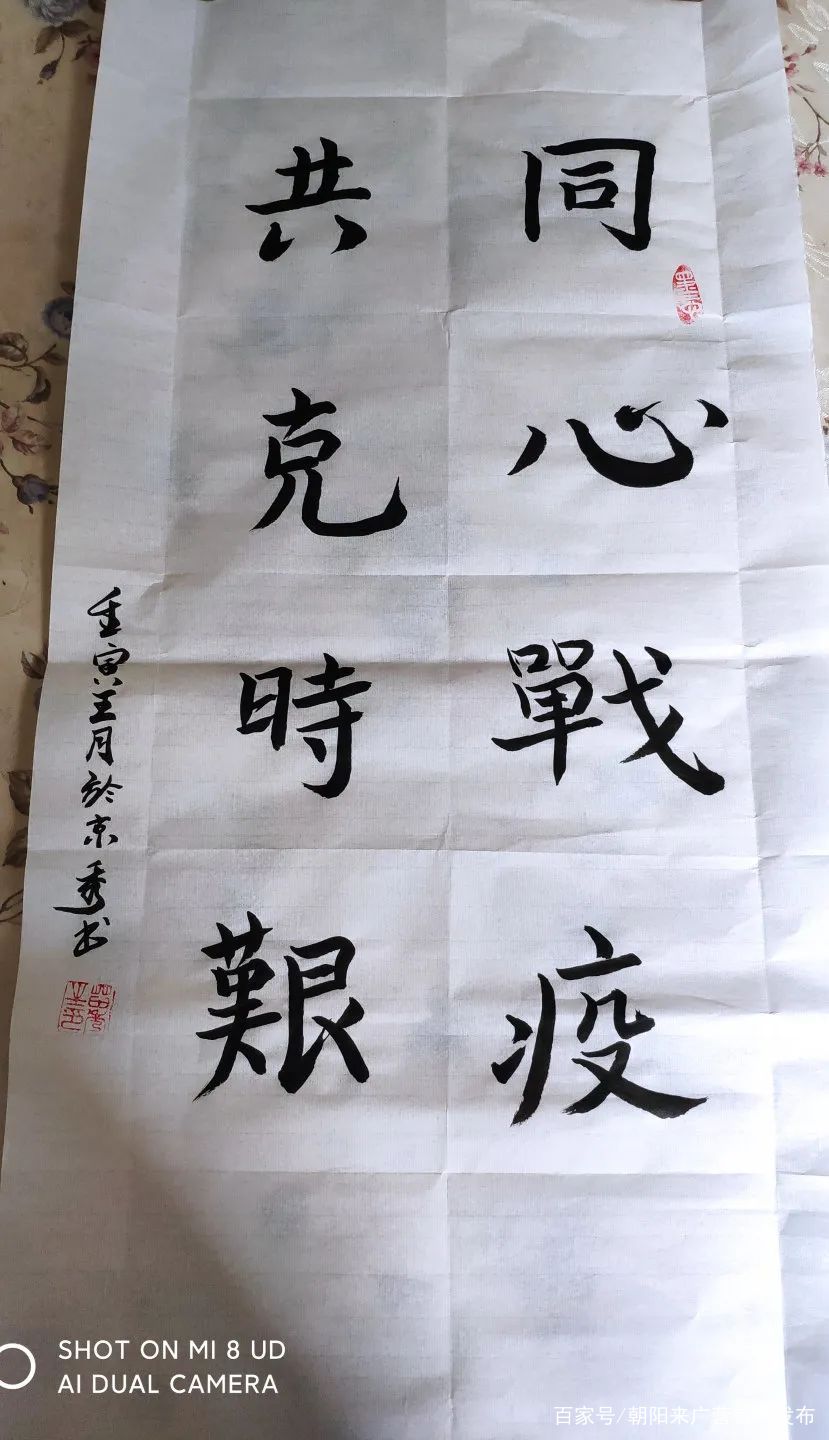 同心戰疫
共克時艱
壬寅五月於京秀书
SHOT ON MI 8 UD
AI DUAL CAMERA
百家号/朝阳来广营 发布